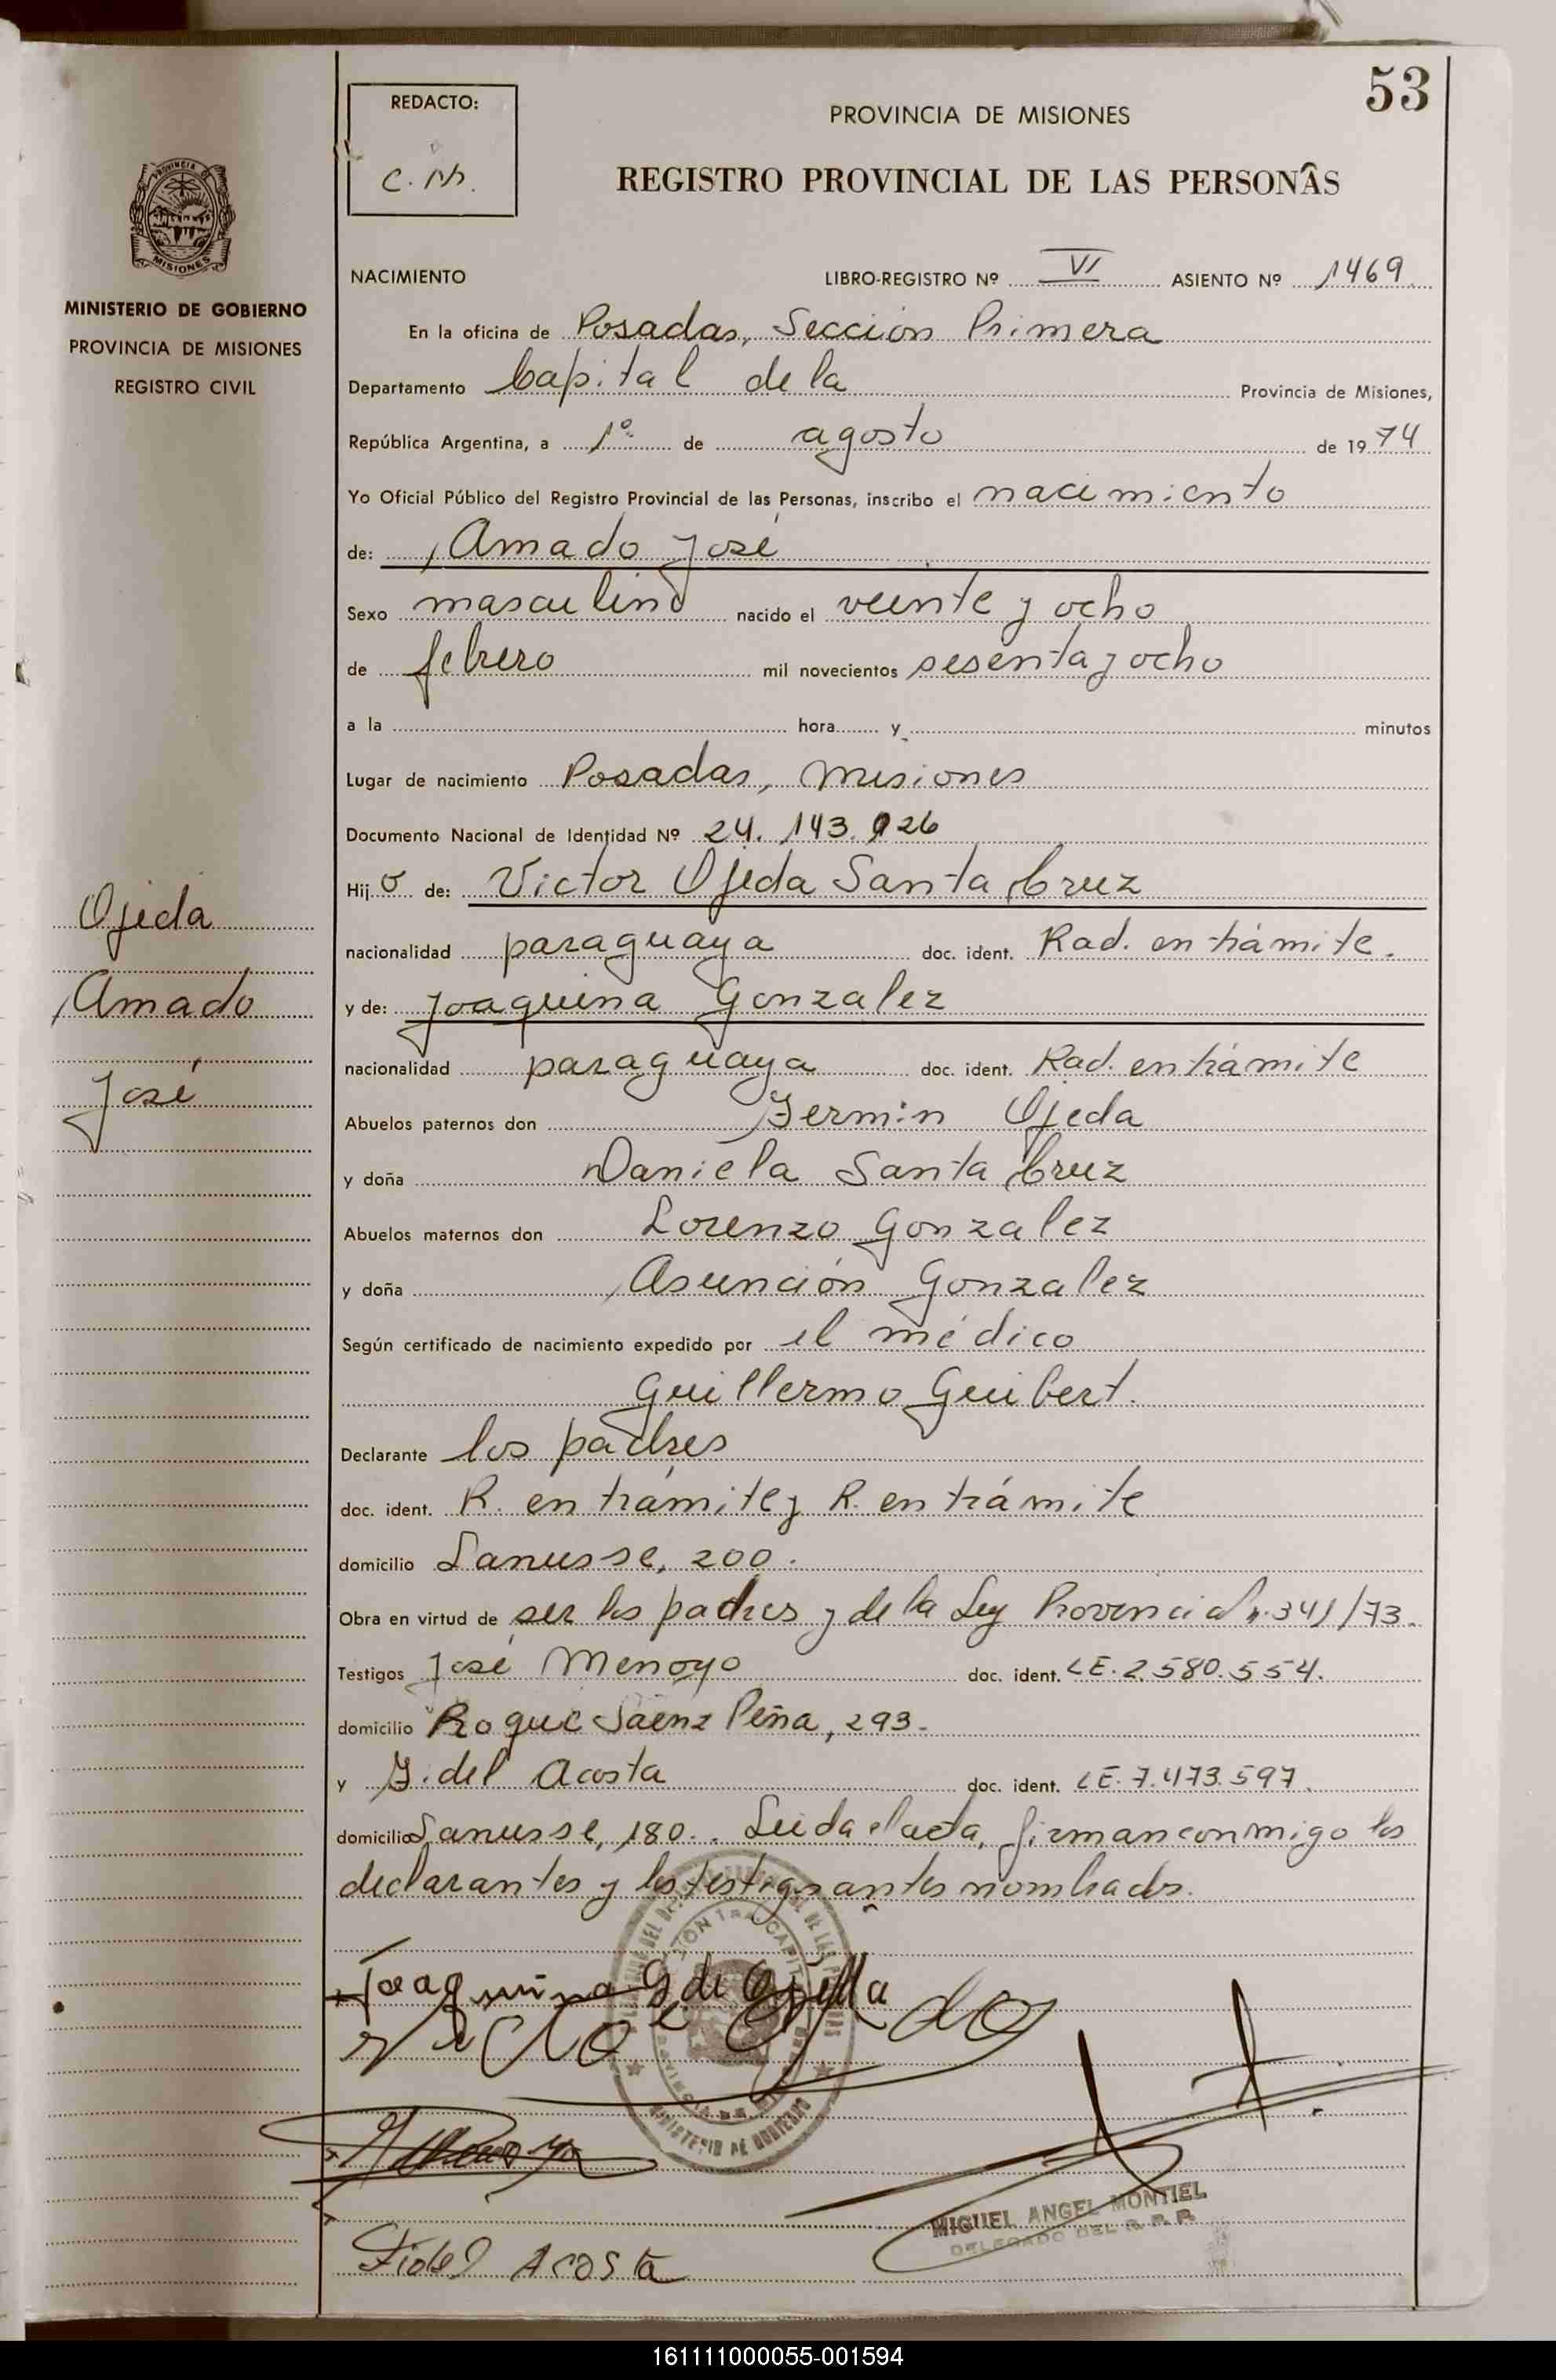 53
REDACTO:
C. M.
PROVINCIA DE MISIONES
REGISTRO PROVINCIAL DE LAS PERSONAS
PROVINCIA
MISIONES
MINISTERIO DE GOBIERNO
PROVINCIA DE MISIONES
REGISTRO CIVIL
Ojeda
Amado
José
NACIMIENTO LIBRO-REGISTRO Nº VI ASIENTO Nº 1469
En la oficina de Posadas, Sección Primera
Departamento Capital de la Provincia de Misiones,
República Argentina, a 1º de agosto de 1974
Yo Oficial Público del Registro Provincial de las Personas, inscribo el nacimiento
de: Amado José
Sexo masculino nacido el veinte y ocho
de febrero mil novecientos sesenta y ocho
a la hora y minutos
Lugar de nacimiento Posadas, Misiones
Documento Nacional de Identidad Nº 24.143.926
Hijo de: Victor Ojeda Santa Cruz
nacionalidad paraguaya doc. ident. Rad. en trámite.
y de: Joaquina Gonzalez
nacionalidad paraguaya doc. ident. Rad. en trámite
Abuelos paternos don Fermin Ojeda
y doña Daniela Santa Cruz
Abuelos maternos don Lorenzo Gonzalez
y doña Asunción Gonzalez
Según certificado de nacimiento expedido por el médico
Guillermo Guibert.
Declarante los padres
doc. ident. R. en trámite y R. en trámite
domicilio Lanusse, 200.
Obra en virtud de ser los padres y de la Ley Provincial n. 341/73.
Testigos José Menoyo doc. ident. LE. 2.580.554.
domicilio Roque Sáenz Peña, 293.
y Fidel Acosta doc. ident. LE. 7.473.597.
domicilio Lanusse, 180. Leida el acta, firman conmigo los
declarantes y los testigos antes nombrados.
Joaquina G de Ojeda
MINISTERIO DE GOBIERNO
MIGUEL ANGEL MONTIEL
DELEGADO DEL R. P. P.
Fidel Acosta
161111000055-001594